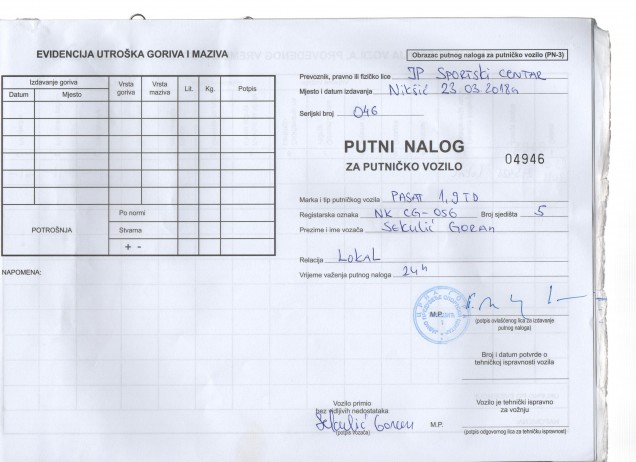 EVIDENCIJA UTROŠKA GORIVA I MAZIVA
Izdavanje goriva
Datum
Mjesto
Vrsta goriva
Vrsta maziva
Lit.
Kg.
Potpis
POTROŠNJA
Po normi
Stvarna
+ -
NAPOMENA:
Obrazac putnog naloga za putničko vozilo (PN-3)
Prevoznik, pravno ili fizičko lice JP SPORTSKI CENTAR
Mjesto i datum izdavanja Nikšić 23 03 2018g
Serijski broj 046
PUTNI NALOG
ZA PUTNIČKO VOZILO
04946
Marka i tip putničkog vozila PASAT 1,9 TD
Registarska oznaka NK CG-056 Broj sjedišta 5
Prezime i ime vozača SEKULIĆ GORAN
Relacija LOKAL
Vrijeme važenja putnog naloga 24h
M.P.
(potpis ovlašćenog lica za izdavanje
putnog naloga)
Broj i datum potvrde o
tehničkoj ispravnosti vozila
Vozilo primio
bez vidljivih nedostataka
Sekulić Goran
(potpis vozača)
M.P.
Vozilo je tehnički ispravno
za vožnju
(potpis odgovornog lica za tehničku ispravnost)